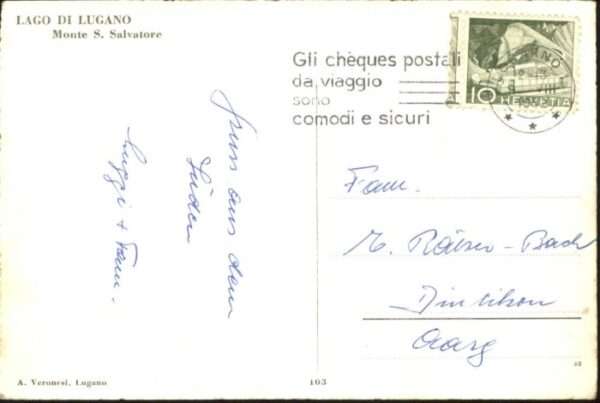 LAGO DI LUGANO
Monte S. Salvatore
Gli chèques postali
da viaggio
sono
comodi e sicuri
10 HELVETIA
Gruss aus dem
Süden
Luggi + Fam.
Fam.
Bach
Dintikon
Aarg
A. Veronesi, Lugano
103